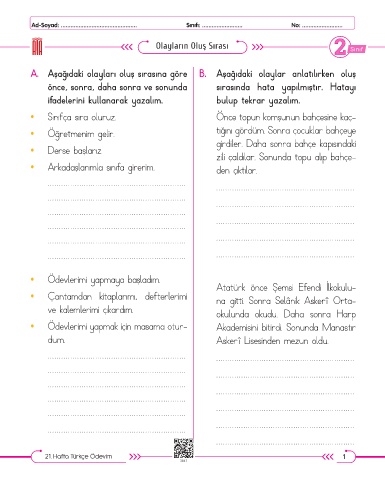 Ad-Soyad: ................................................ Sınıf: .......................... No: ..........................
Olayların Oluş Sırası
2. Sınıf
A. Aşağıdaki olayları oluş sırasına göre
önce, sonra, daha sonra ve sonunda
ifadelerini kullanarak yazalım.
• Sınıfça sıra oluruz.
• Öğretmenim gelir.
• Derse başlarız.
• Arkadaşlarımla sınıfa girerim.
• Ödevlerimi yapmaya başladım.
• Çantamdan kitaplarımı, defterlerimi
ve kalemlerimi çıkardım.
• Ödevlerimi yapmak için masama otur-
dum.
B. Aşağıdaki olaylar anlatılırken oluş
sırasında hata yapılmıştır. Hatayı
bulup tekrar yazalım.
Önce topun komşunun bahçesine kaç-
tığını gördüm. Sonra çocuklar bahçeye
girdiler. Daha sonra bahçe kapısındaki
zili çaldılar. Sonunda topu alıp bahçe-
den çıktılar.
Atatürk önce Şemsi Efendi İlkokulu-
na gitti. Sonra Selânik Askerî Orta-
okulunda okudu. Daha sonra Harp
Akademisini bitirdi. Sonunda Manastır
Askerî Lisesinden mezun oldu.
21. Hafta Türkçe Ödevim
1